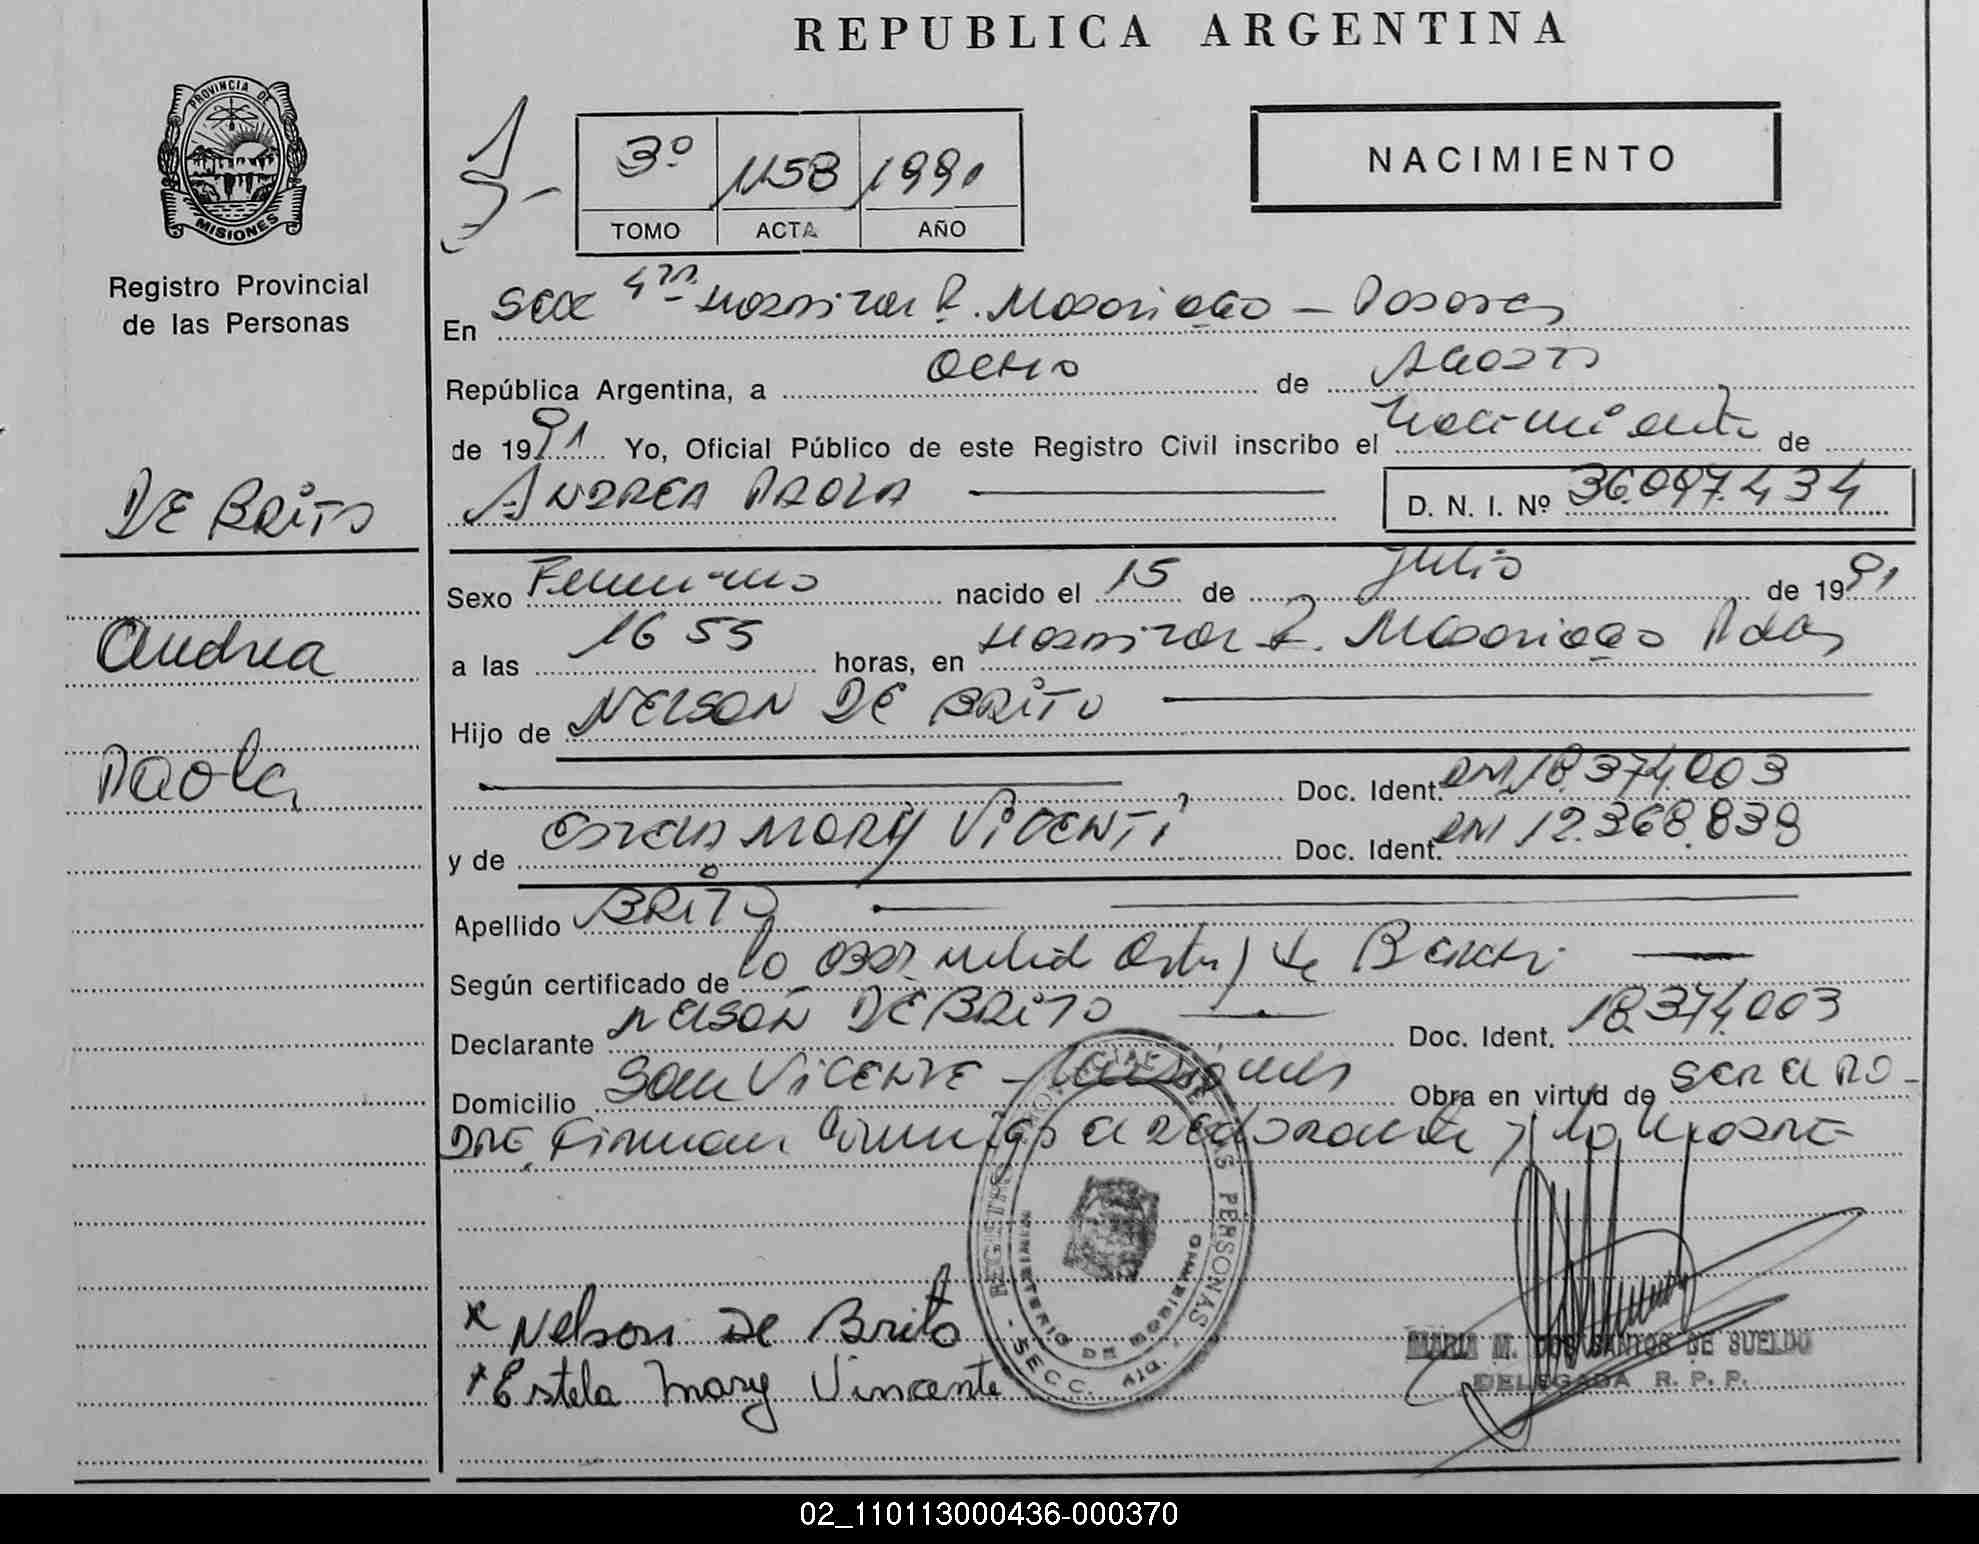 REPUBLICA ARGENTINA
PROVINCIA DE
MISIONES
Registro Provincial
de las Personas
3º 1158 1991
TOMO ACTA AÑO
NACIMIENTO
En Secc 4ta Hospital R. Madariaga - Posadas
República Argentina, a Ocho de Agosto
de 1991 Yo, Oficial Público de este Registro Civil inscribo el Nacimiento de
DE BRITO
ANDREA PAOLA D. N. I. Nº 36.097.434
Sexo Femenino nacido el 15 de Julio de 1991
Andrea
a las 16 55 horas, en Hospital R. Madariaga Pdas
Hijo de NELSON DE BRITO
Paola
Doc. Ident. DNI 18.374.003
y de ESTELA MARY VICENTI Doc. Ident. DNI 12.368.839
Apellido BRITO
Según certificado de la
Declarante NELSON DE BRITO Doc. Ident. 18.374.003
Domicilio San VICENTE - Misiones Obra en virtud de ser el PA-
DRE, Firman el declarante y la
REGISTRO PROVINCIAL DE LAS PERSONAS
MINISTERIO DE GOBIERNO
- SECC. 4ta. -
x Nelson De Brito
x Estela Mary Vincente
MARIA M. DOS SANTOS DE SUELDO
DELEGADA R. P. P.
02_110113000436-000370